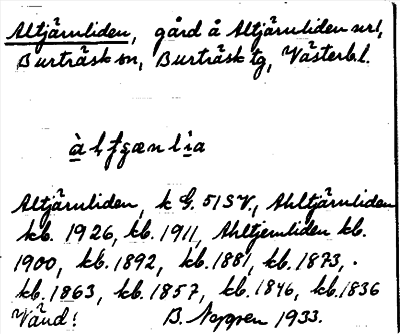 Altjärnliden, gård å Altjärnliden nr1,
Burträsk sn, Burträsk tg, Västerb.l.
Altjärnliden, k G. 51SV., Ahltjärnliden
kb. 1926, kb. 1911, Ahltjernliden kb.
1900, kb. 1892, kb. 1881, kb. 1873,
kb. 1863, kb. 1857, kb. 1846, kb. 1836
Vänd! B. 1933.